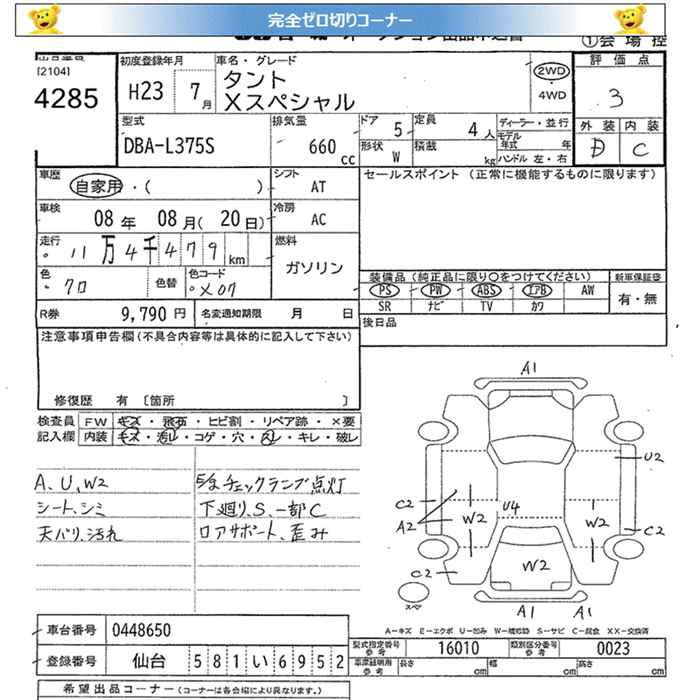 完全ゼロ切りコーナー
①会場控
[2104]
4285
初度登録年月
H23 7月
車名・グレード
タント
Xスペシャル
2WD・4WD
評価点
3
外装 内装
D C
型式
DBA-L375S
排気量
660 cc
ドア 5
定員 4人
形状 W
積載 kg
ディーラー・並行
モデル年式 年
ハンドル 左・右
車歴
自家用・( )
シフト AT
セールスポイント (正常に機能するものに限ります)
車検
08年 08月(20日)
冷房 AC
走行
11万4千479km
燃料 ガソリン
色 クロ
色替
色コード X07
装備品 (純正品に限り○をつけてください)
新車保証書
PS PW ABS エアB AW
SR ナビ TV カワ
有・無
R券 9,790円
名変通知期限 月 日
後日品
注意事項申告欄(不具合内容等は具体的に記入して下さい)
修復歴 有 〔箇所 〕
検査員記入欄
FW キズ・飛石・ヒビ割・リペア跡・×要
内装 キズ・汚レ・コゲ・穴・スレ・キレ・破レ
A、U、W2
シート、シミ
天バリ、汚れ
チェックランプ点灯
下廻り、S、一部C
ロアサポート、歪み
A1
U2
C2
A2
W2
U4
W2
C2
C2
W2
スペア
A1
A1
A-キズ E-エクボ U-凹み W-補修跡 S-サビ C-腐食 XX-交換済
車台番号 0448650
登録番号 仙台 581い6952
型式指定番号 参考 16010
類別区分番号 参考 0023
車庫証明用 参考 長さ cm 幅 cm 高さ cm
希望出品コーナー (コーナーは各会場により異なります。)